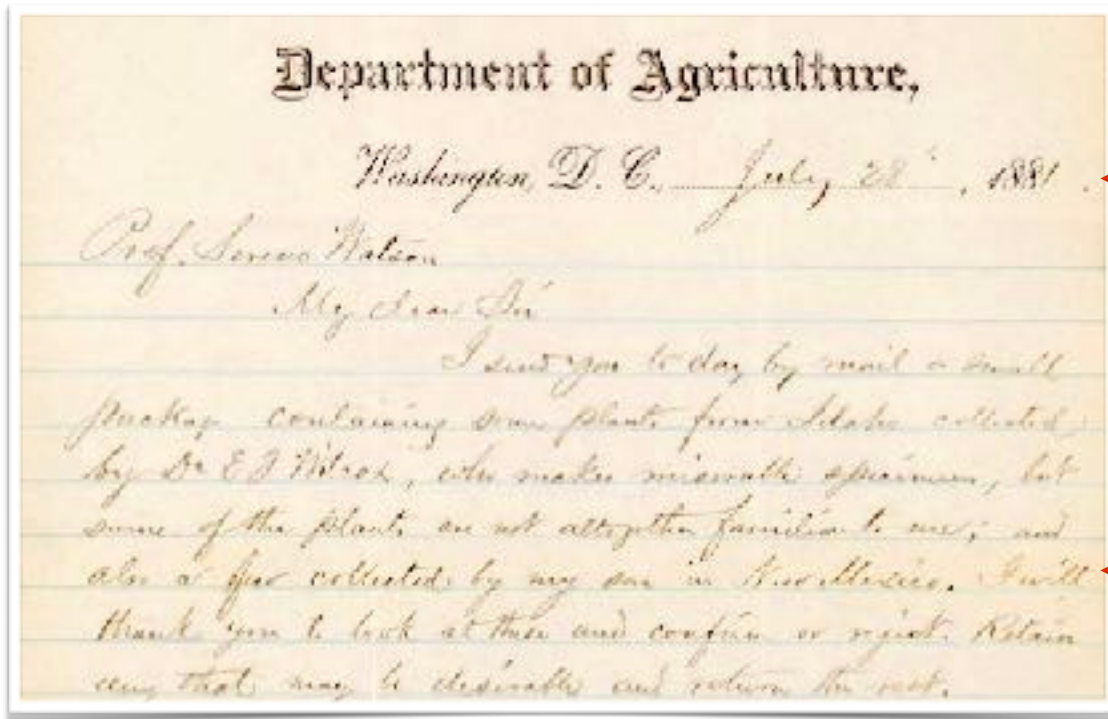 Department of Agriculture,
Washington, D. C., July 28, 1881.
Prof. Sereno Watson
My dear Sir
I send you to day by mail a small
package containing some plants from Idaho collected
by Dr E J Wilcox, who makes miserable specimens, but
some of the plants are not altogether familiar to me; and
also a few collected by my son in New Mexico. I will
thank you to look at them and confirm or reject. Retain
any that may be desirable and return the rest.